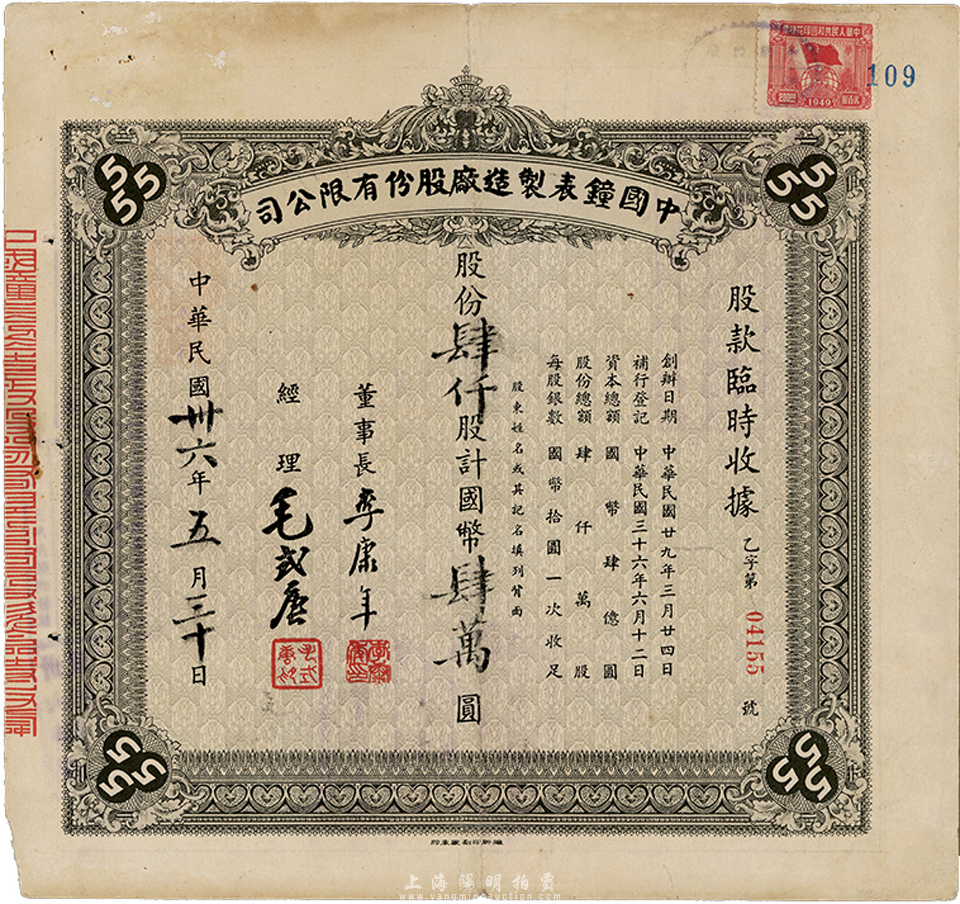 中華人民共和國印花稅票
1949
109
中國鐘表製造廠股份有限公司
股款臨時收據 乙字第 04155 號
創辦日期 中華民國廿九年三月廿四日
補行登記 中華民國三十六年六月十二日
資本總額 國幣肆億圓
股份總額 肆仟萬股
每股銀數 國幣拾圓一次收足
股東姓名或其記名填列背面
股份肆仟股計國幣肆萬圓
董事長 李康年
經理 毛式唐
中華民國卅六年五月三十日
55
55
55
55
上海陽明拍賣
www.yangmingauction.com